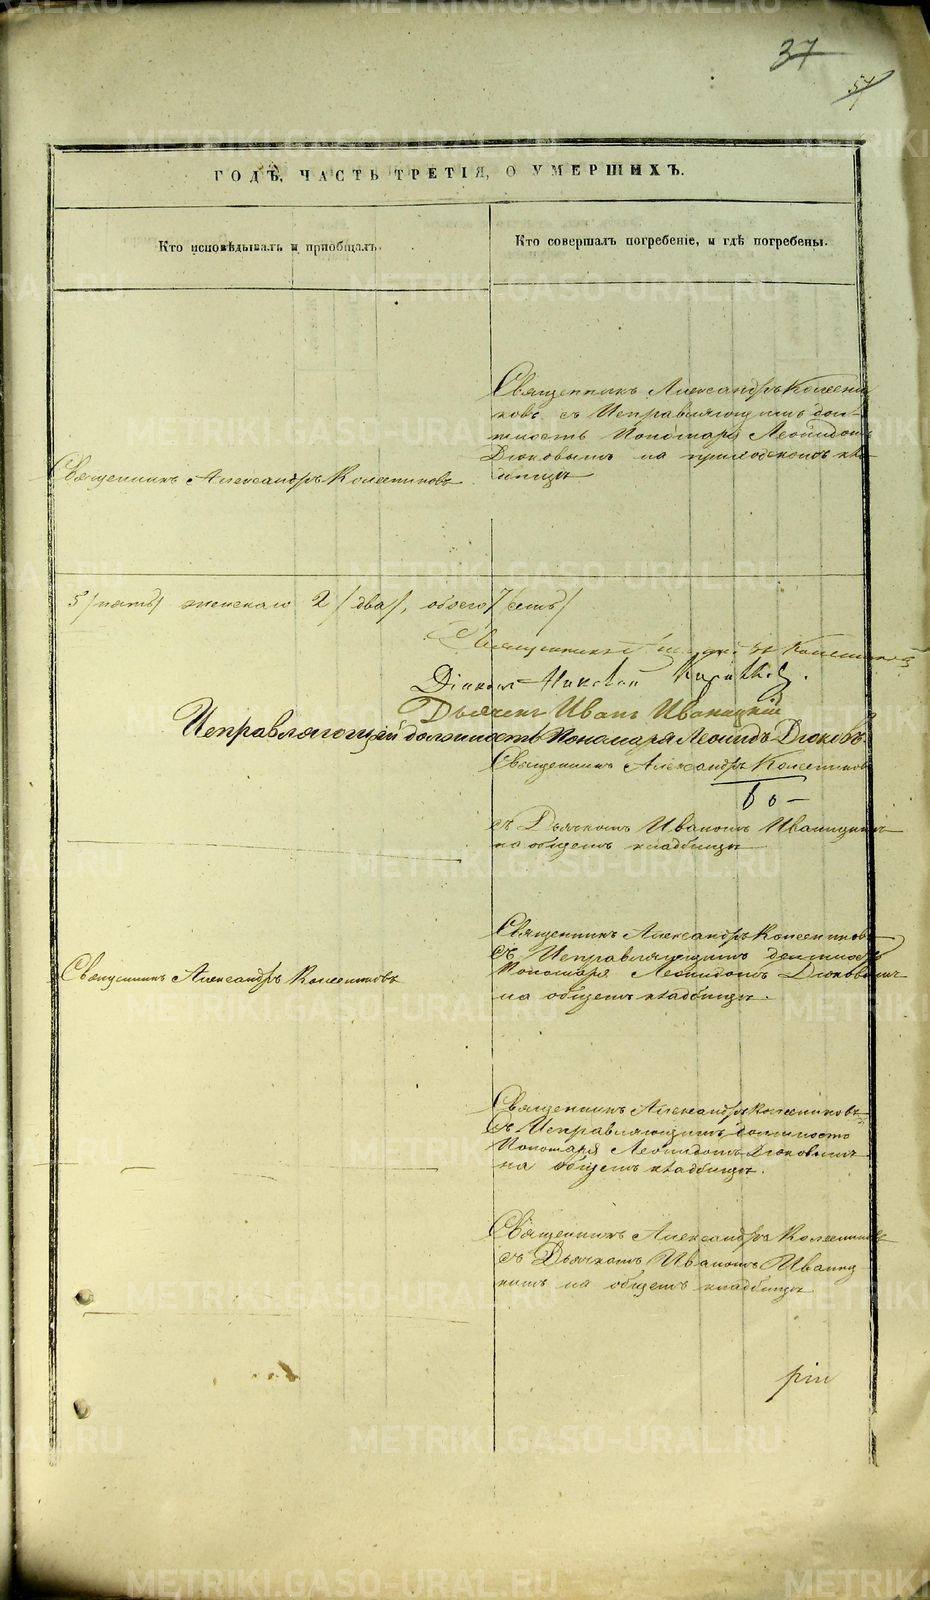 37
57
ГОДѢ, ЧАСТЬ ТРЕТІЯ, О УМЕРШИХЪ.
Кто исповѣдывалъ и пріобщалъ.
Кто совершалъ погребеніе, и гдѣ погребены.
Священникъ Александръ Колесни
ковъ съ Исправляющимъ дол-
жность Пономаря Леонидомъ
Дюковымъ на приходскомъ кла-
Священникъ Александръ Колесниковъ
дбищѣ
5 /пять/ женскаго 2 /два/, обоего 7 /семь/
Священникъ Колесниковъ
Діаконъ
Дьячекъ Иванъ Иваницкій
Исправляющій должность Пономаря Леонидъ Дюковъ.
Священникъ Александръ Колесников
съ Дьячкомъ Иваномъ Иваницкимъ
на общемъ кладбищѣ
Священникъ Александръ Колесников
съ Исправляющимъ должность
Священникъ Александръ Колесниковъ
Пономаря Леонидомъ Дюковымъ
на общемъ кладбищѣ.
Священникъ Александръ Колесниковъ
съ Исправляющимъ должность
Пономаря Леонидомъ Дюковымъ
на общемъ кладбищѣ.
Священникъ Александръ Колесников
съ Дьячкомъ Иваномъ Иваниц
кимъ на общемъ кладбищѣ
METRIKI.GASO-URAL.RU